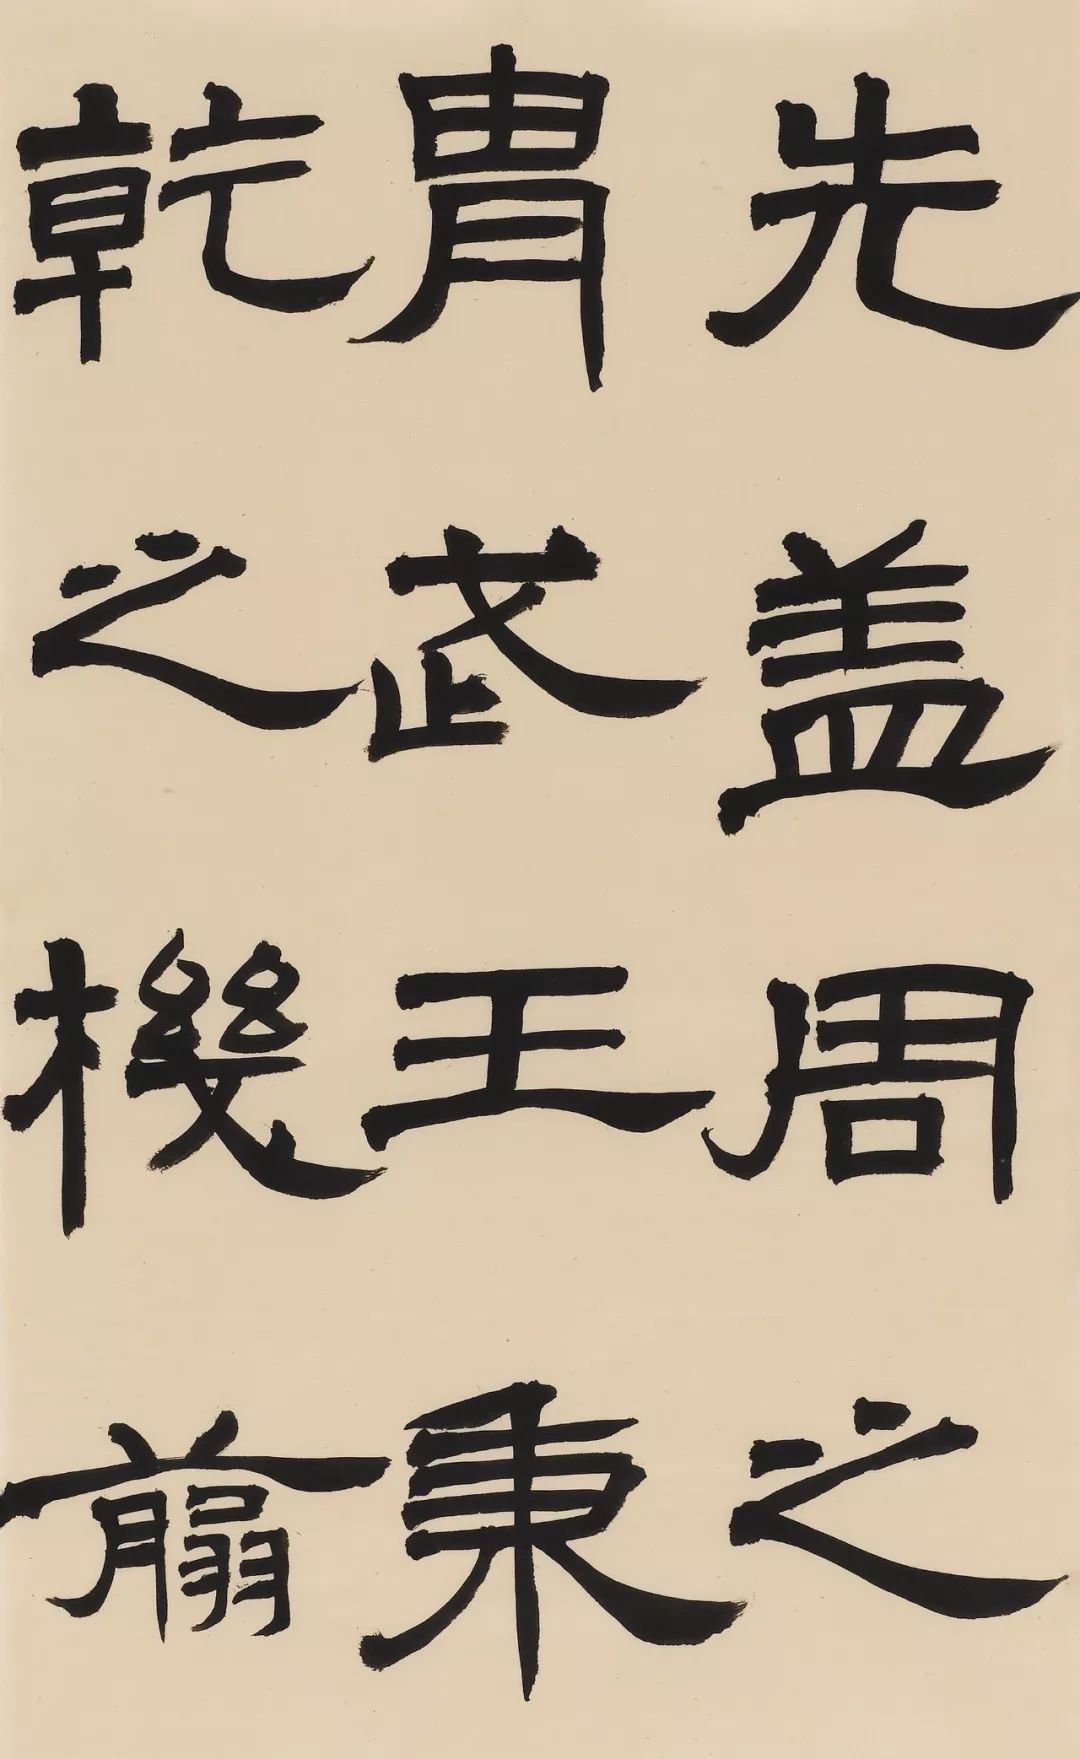 先盖周之
胄武王秉
乾之機翦